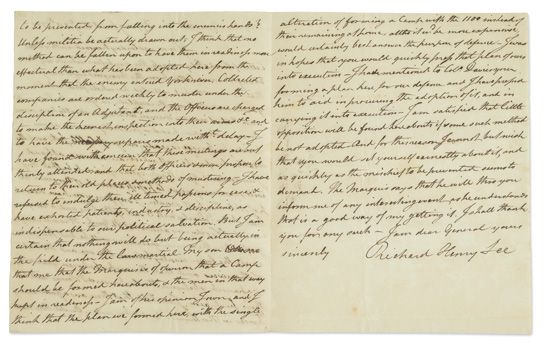 to be prevented from falling into the enemies hands &
Unless militia be actually drawn out, I think that no
method can be fallen upon to have them in readiness more
effectual than what has been adopted here from the
moment that the enemy entered
companies are ordered weekly to muster under the
of an Adjutant, and the Officers are
to make the inspection into their arms &c. and
to have the necessary repairs made without delay - I
have found with concern that these meetings are but
thinly attended and that both officers & men propose to
return to their old methods of mustering. I have
refused to indulge their ill timed passions for ease &
have exhorted patiently, industry & discipline, as
indispensable to our political salvation. But I am
certain that nothing will do but being actually in
the field under the law martial. My son
that me that the Marquis is of opinion that a Camp
should be formed hereabouts, & the men in that way
kept in readiness. I am of this opinion I own, and I
think that the plan we formed here, with the single
alteration of forming a Camp with the 1100 instead of
their remaining at home, altho it wd. be more expensive,
would certainly best answer the purpose of defence. I was
in hopes that you would quickly put that plan of ours
into execution. I have mentioned to Colo.
forming a plan here for our defence and I have pressed
him to aid in procuring the adoption of it, and in
carrying it into execution. I am satisfied that little
opposition will be found hereabouts if some such method
be not adopted. And for this reason I cannot but wish
that you would set yourself earnestly about it, and
as quickly as the mischief to be prevented seems to
demand. The Marquis says that he will thro you
inform me of any interesting event, as he understands
that is a good way of my getting it. I shall thank
you for any such - I am dear General yours
sincerely
Richard Henry Lee